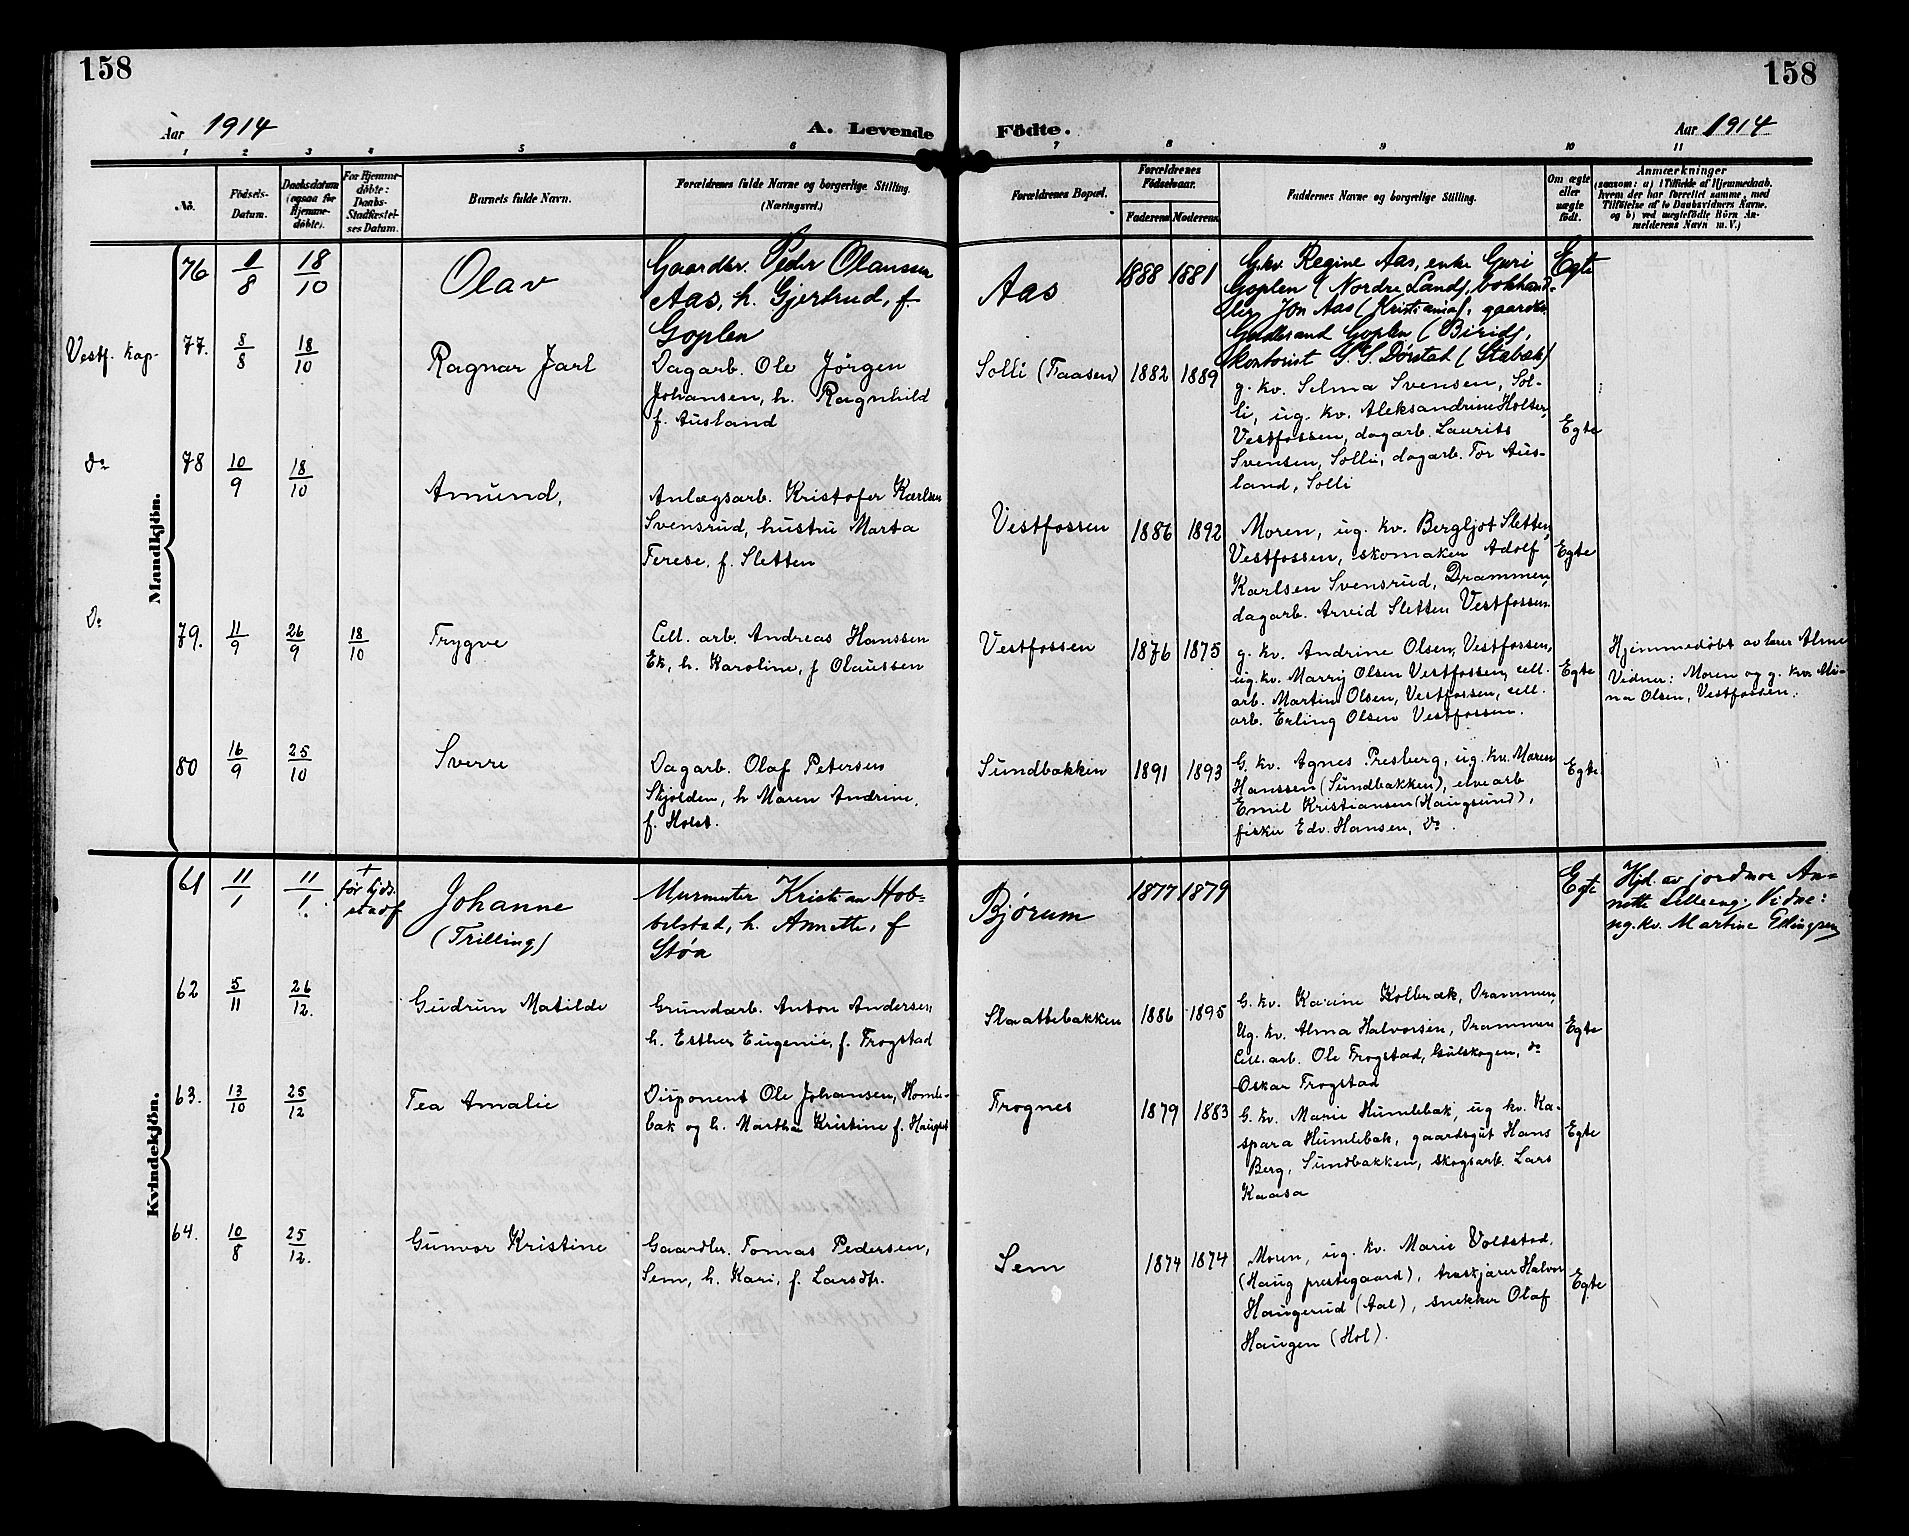 158
158
Aar 1914
A. Levende Födte.
Aar 1914
1 2 3 4 5 6 7 8 9 10 11
No.
Födsels-
Datum.
Daabsdatum
(ogsaa for
Hjemme-
döbte).
For Hjemme-
döbte:
Daabs-
Stadfæstel-
ses Datum.
Barnets fulde Navn.
Forældrenes fulde Navne og borgerlige Stilling.
(Næringsvei.)
Forældrenes Bopæl.
Forældrenes
Födselsaar.
Faderens Moderens
Faddernes Navne og borgerlige Stilling.
Om ægte
eller
uægte
født.
Anmærkninger
(saasom: a) i Tilfælde af Hjemmedaab,
hvem der har forrettet samme, med
Tilföielse af to Daabsvidners Navne,
og b) ved uægtefödte Börn An-
melderens Navn m. V.)
Mandkjön.
76 1/8 18/10
Olav
Gaardbr. Peder Olaussen
Aas, h. Gjertrud, f.
Goplen
Aas
1888 1881
G.kv. Regine Aas, enke Guri
Goplen (Nordre Land), bokhand-
ler Jon Aas (Kristiania), gaardbr.
Gudbrand Goplen (Birid),
kontorist S. S. Dørstad (Stabæk)
Egte
Vestf. kap.
77. 8/8 18/10
Ragnar Jarl
Dagarb. Ole Jörgen
Johansen, h. Ragnhild
f. Ausland
Solli (Faasen)
1882 1889
g. kv. Selma Svensen, Sol-
li, ug. kv. Aleksandrine Holter,
Vestfossen, dagarb. Laurits
Svensen, Solli, dagarb. Tor Aus-
land, Solli
Egte
do
78 10/9 18/10
Amund,
Anlægsarb. Kristofer Karlsen
Svensrud, hustru Marta
Terese, f. Sletten
Vestfossen
1886 1892
Moren, ug. kv. Bergljot Sletten,
Vestfossen, skomaker Adolf
Karlsen Svensrud, Drammen,
dagarb. Arvid Sletten Vestfossen
Egte
do
79. 11/9 26/9 18/10
Trygve
Cell. arb. Andreas Hanssen
Ek, h. Karoline, f Olaussen
Vestfossen
1876 1875
g. kv. Andrine Olsen, Vestfossen,
ug. kv. Marry Olsen Vestfossen, cell.
arb. Martin Olsen, Vestfossen, cell.
arb. Erling Olsen Vestfossen.
Egte
Hjemmedøbt av lærer Alme
Vidner: Moren og g. kv. Mi-
na Olsen, Vestfossen.
80 16/9 25/10
Sverre
Dagarb. Olaf Petersen
Skjolden, h Maren Andrine,
f. Holst.
Sundbakken
1891 1893
G. kv. Agnes Presberg, ug. kv. Maren
Hanssen (Sundbakken), elvearb
Emil Kristiansen (Haugsund),
fisker Edv. Hansen, do.
Egte
Kvindekjön.
61 11/1 11/1. +
før kjds.
stadf
Johanne
(Trilling)
Murmester Kristian Hob-
belstad, h. Annette, f
Støa
Bjørum
1877 1879
Egte
Hjd. av jordmor An-
nette Lilleeng. Vidne:
ug. kv. Martine Ellingsen
62 5/11 26/12.
Gudrun Matilde
Grundarb. Anton Andersen,
h. Esther Eugenie, f. Frogstad
Slaattebakken
1886 1895
G. kv. Karine Kolbræk, Drammen,
Ug. kv. Alma Halvorsen, Drammen
Cell. arb. Ole Frogstad, Gulskogen, do
Oskar Frogstad
Egte
63. 13/10 25/12
Tea Amalie
Disponent Ole Johansen, Homle-
bak og h. Martha Kristine f. Haugstad
Frognes
1879 1883
G. kv. Marie Humlebak, ug kv. Ka-
spara Humlebak, gaardsgut Hans
Berg, Sundbakken, skogsarb. Lars
Kaasa
Egte
64. 10/8 25/12.
Gunvor Kristine
Gaardbr. Tomas Pedersen,
Sem, h. Kari, f. Larsdtr.
Sem
1874 1874
Moren, ug. kv. Marie Voldstad,
(Haug prestegaard), træskjærer Halvor
Haugerud (Aal), snekker Olaf
Haugen (Hol).
Egte